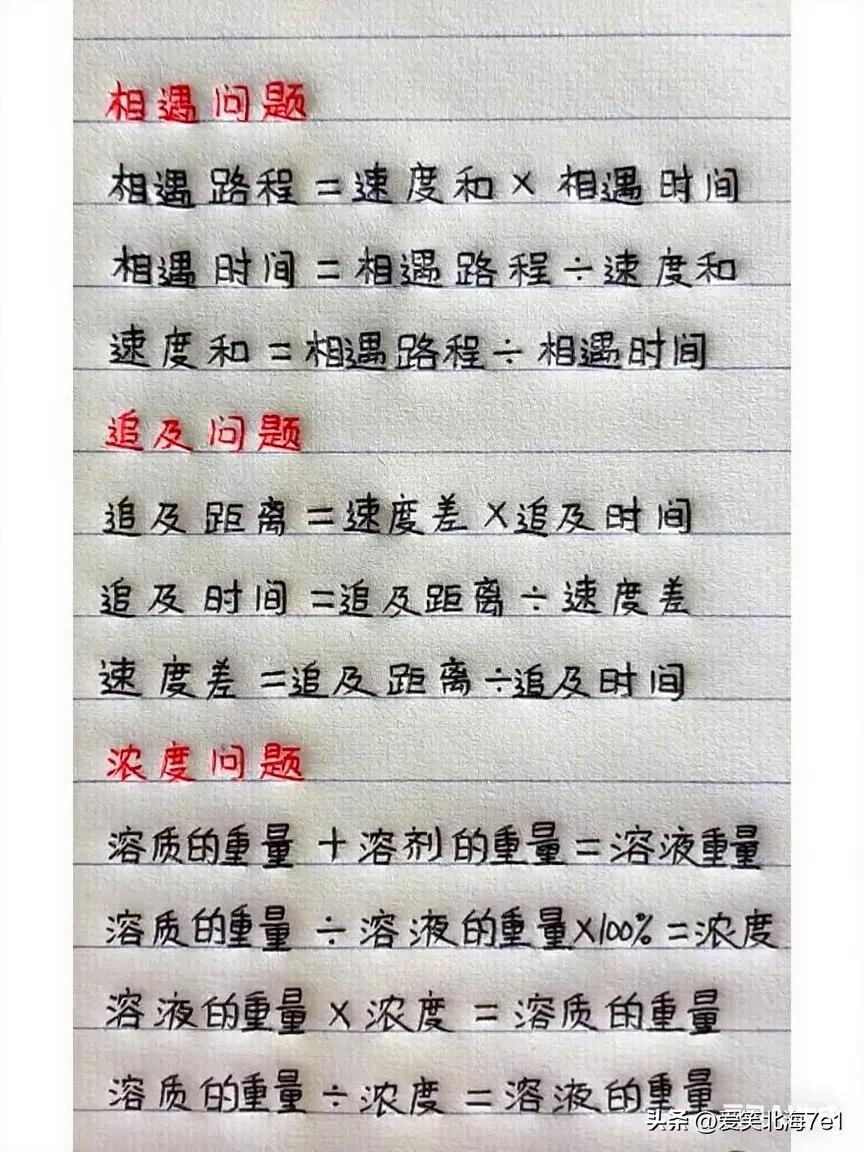 相遇问题
相遇路程=速度和×相遇时间
相遇时间=相遇路程÷速度和
速度和=相遇路程÷相遇时间
追及问题
追及距离=速度差×追及时间
追及时间=追及距离÷速度差
速度差=追及距离÷追及时间
浓度问题
溶质的重量+溶剂的重量=溶液重量
溶质的重量÷溶液的重量×100%=浓度
溶液的重量×浓度=溶质的重量
溶质的重量÷浓度=溶液的重量
头条 @爱笑北海7e1